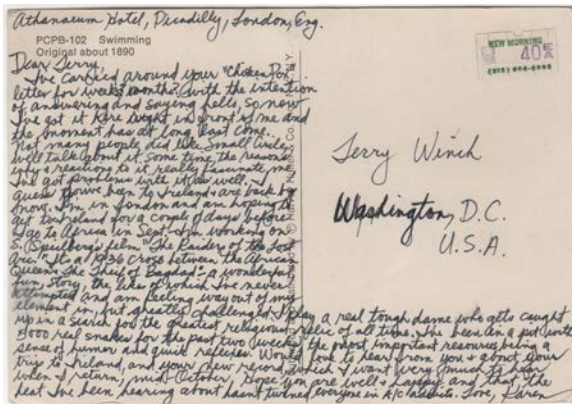 Athanaeum Hotel, Picadilly, London, Eng.
PCPB-102 Swimming
Original about 1890
NEW MORNING
40¢
Dear Terry,
I've carried around your "Chicken Pox"
letter for weeks? months? with the intention
of answering and saying hello, so now
I've got it here right in front of me and
the moment has at long last come.
Not many people did like Small Circle,
we'll talk about it some time, the reasons
why & reactions to it, really fascinate me.
I've got problems with it as well. I
guess you've been to Ireland & are back by
now. I'm in London and am hoping to
get to Ireland for a couple of days before
I go to Africa in Sept. I'm working on
S. Spielberg's film "The Raiders of the Lost
Arc." It's a 1936 cross between the African
Queen & The Thief of Bagdad - a wonderful
fun, story, the like of which I've never
attempted and am feeling way out of my
element in, but greatly challenged. I play a real tough dame who gets caught
up in a search for the greatest religious relic of all time. I've been in a pit with
5000 real snakes for the past two weeks, the most important resources being a
sense of humor and quick reflexes. Would love to hear from you & about your
trip to Ireland, and your new record, which I want very much to hear
when I return, mid-October, Hope you are well & happy and that, the
heat I've been hearing about hasn't turned everyone in A/C addicts. Love, Karen
Terry Winch
Washington, D.C.
U.S.A.